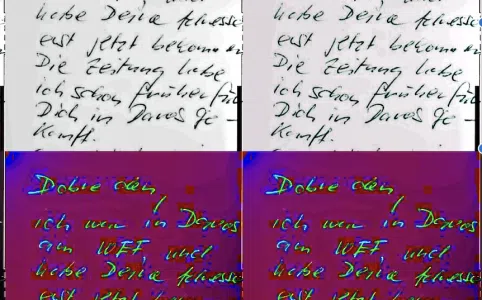 habe Deine Adresse
erst jetzt bekommen
Die Zeitung habe
ich schon früher für
Dich in Davos ge-
kauft.
habe Deine Adresse
erst jetzt bekommen
Die Zeitung habe
ich schon früher für
Dich in Davos ge-
kauft.
Dobre den,
ich war in Davos
am WEF, und
habe Deine Adresse
erst jetzt
Dobre den,
ich war in Davos
am WEF, und
habe Deine Adresse
erst jetzt